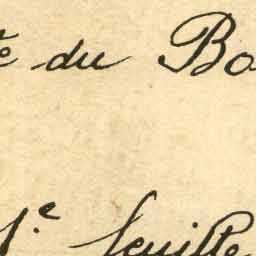 du Bo
1.e feuille